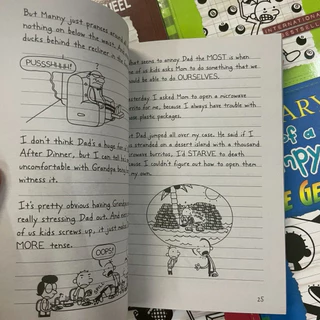 But Manny just prances around
nothing on below the waist.
ducks behind the recliner
PUSSSHHHH!
?
I don't think Dad's a huge fan
After Dinner, but I can tell
uncomfortable with Grandpa being
witness it.
It's pretty obvious having Grandpa
really stressing Dad out. And
of us kids screws up, it just
MORE tense.
OOPS!
seems to annoy Dad the MOST is when
of us kids asks Mom to do something that we
be able to do OURSELVES.
I asked Mom to open a microwave
for me, because I always have trouble with
plastic packages.
Dad jumped all over my case. He said if I
stranded on a desert island with a thousand
burritos, I'd STARVE to death
I couldn't figure out how to open them
my own.
25
HEEL
INTERNATIONAL
BESTSELLER
ARY
of a
mpy
GE